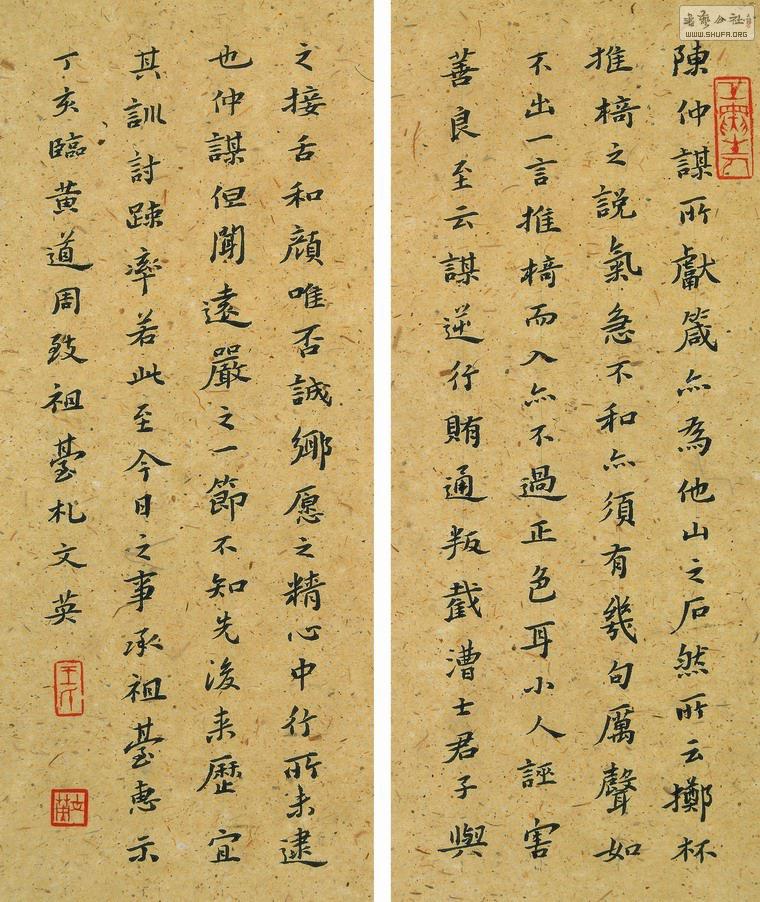 陳仲謀所獻箴亦為他山之石然所云擲杯
推槅之説氣急不和亦須有幾句厲聲如
不出一言推槅而入亦不過正色耳小人誣害
善良至云謀逆行賄通叛截漕士君子與
之接舌和顔唯否誠鄉愿之精心中行所未逮
也仲謀但聞遠嚴之一節不知先後来歷宜
其訓討疎率若此至今日之事承祖臺惠示
丁亥臨黄道周致祖臺札文英
WWW.SHUFA.ORG